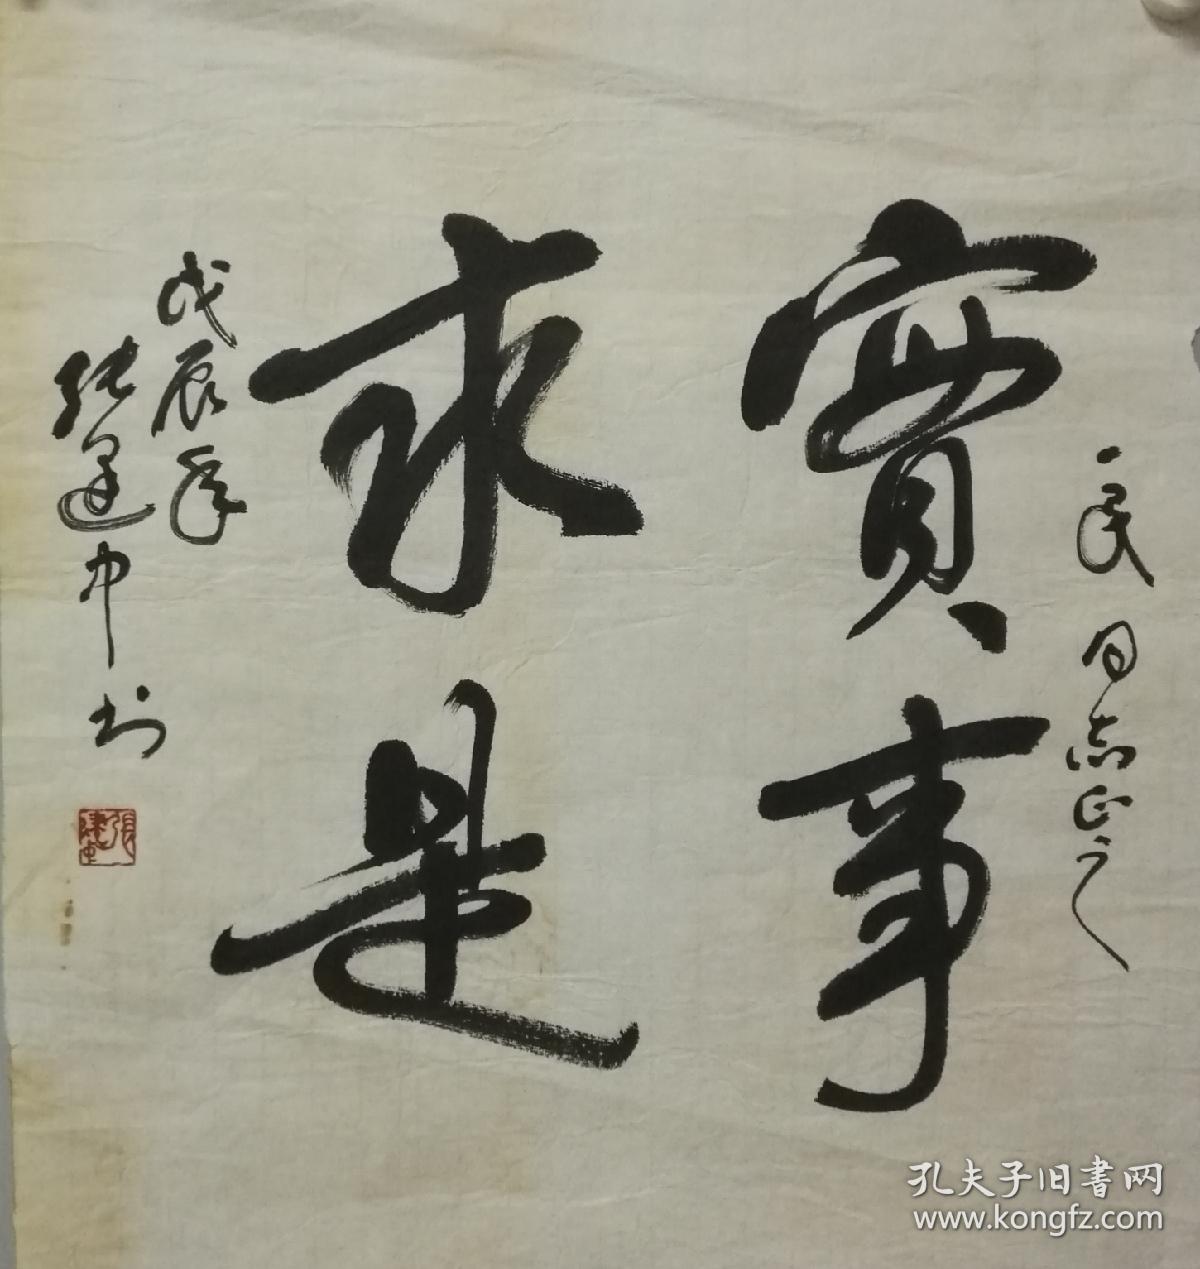 一民同志正之
實事
求是
戊辰年
張建中书
張建中
孔夫子旧書网
www.kongfz.com